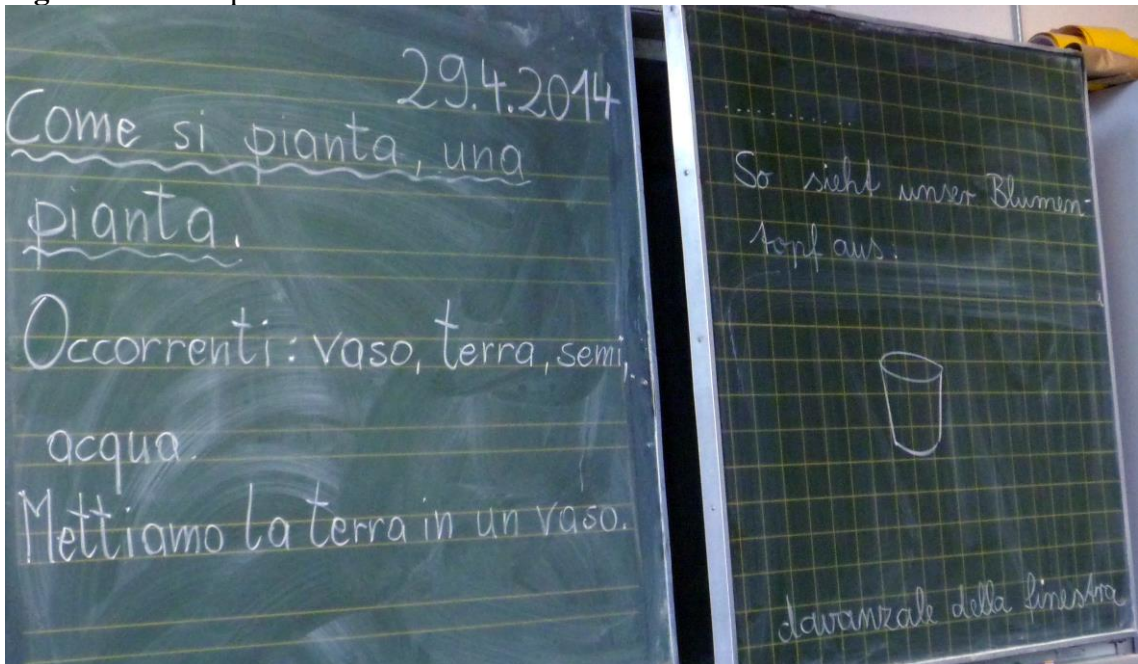 29.4.2014
Come si pianta, una
pianta.
Occorrenti: vaso, terra, semi,
acqua.
Mettiamo la terra in un vaso.
..........
So sieht unser Blumen-
topf aus.
davanzale della finestra